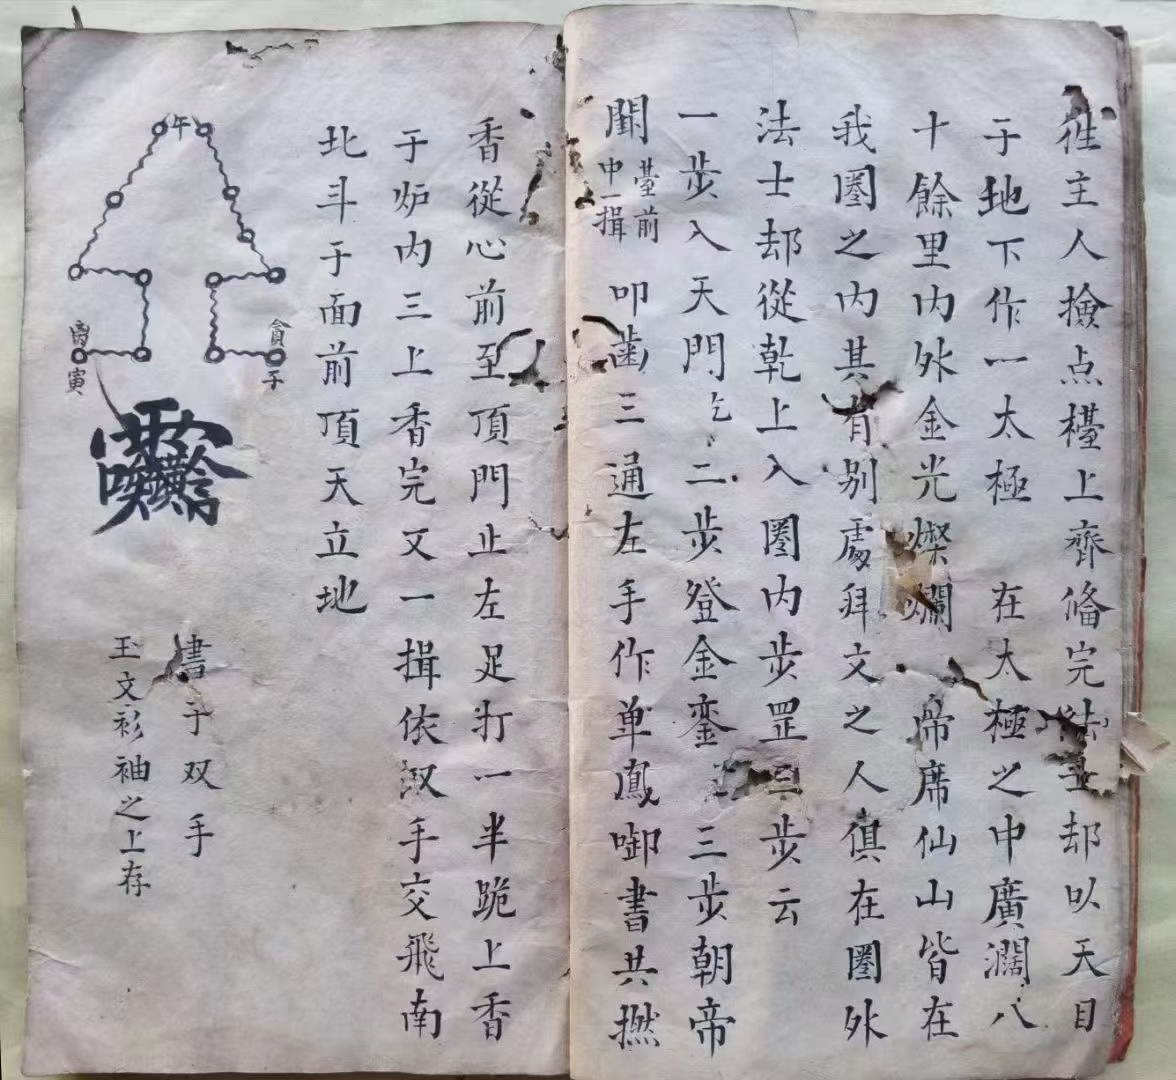 徃主人撿点檯上齊俻完法却以天目
于地下作一太極 在太極之中廣濶八
十餘里内外金光燦爛 帝席仙山皆在
我圈之内其有别處拜文之人俱在圈外
法士却從乾上入圈内步罡三步云
一步入天門乞 二步登金銮 三步朝帝
闕 臺前
中一揖 叩歯三通左手作单鳳啣書共撚
香從心前至頂門止左足打一半跪上香
于炉内三上香完又一揖依汊手交飛南
北斗于面前頂天立地
午
貪子
寅
書于双手
玉文衫袖之上存